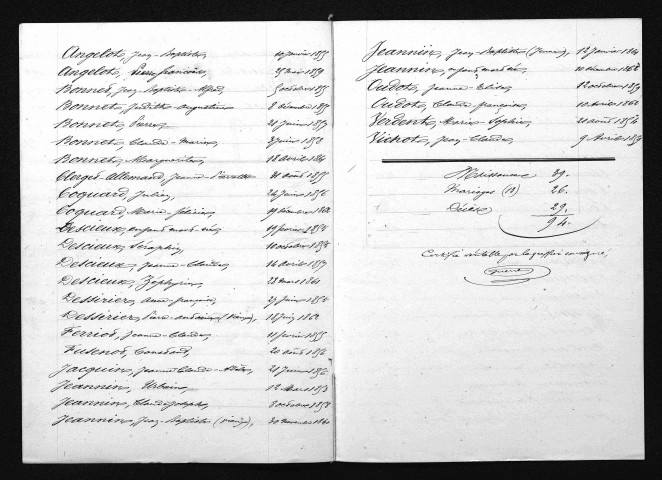 Angelot, Jean-Baptiste, 10 janvier 1855
Angelot, Pierre François, 25 mai 1859
Bonnet, Jean-Baptiste-Alfred, 5 octobre 1855
Bonnet, Judith-Augustine 8 décembre 1855
Bonnet, Pierre, 21 juin 1853
Bonnet, Claude-Marie, juin 1858
Bonnet, Marguerite, 18 avril 1861
Clerget-Allemand, Jeanne-Pierrette 31 août 1855
Coquard, Julien, 24 juin 1856
Coquard, Marie-Félicie, 19 décembre 1862
Descieux, enfant mort-né, 19 février 1858
Descieux, Séraphin, 10 octobre 1858
Descieux, Jeanne-Claude, 14 avril 1859
Descieux, Zéphyrin, 28 mars 1861
Dessirier, Anne-françoise, 27 janvier 1856
Dessirier, (vierge), 18 juin 1862
Ferriot, Jeanne-Claude, 11 février 1855
Fusenot, Constant, 20 août 1856
Jacquin, Jeanne-Claude 21 janvier 1856
Jeannin, Urbain, 12 mars 1853
Jeannin, Claude-Joseph, 8 octobre 1858
Jeannin, Jean-Baptiste 30 novembre 1860
Jeannin, Jean-Baptiste 12 janvier 1861
Jeannin, enfant mort-né, 10 décembre 1862
Oudot, Jeanne 12 octobre 1859
Oudot, Claude-françoise, 10 février 1862
Verdent, Marie-Sophie, 20 août 1856
Vichot, Jean-Claude, 9 avril 1859
Naissances 39.
Mariages (13) 26.
Décès 29.
94.
Certifié véritable par le greffier soussigné,